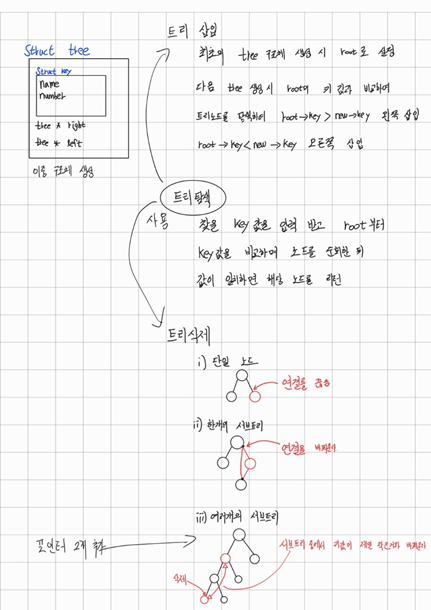 트리 삽입
Struct tree
Struct key
name
number
tree * right
tree * left
이용 구조체 생성
최초의 tree 구조체 생성 시 root로 설정
다음 tree 생성시 root의 키 값과 비교하며
트리노드를 탐색하여 root→key > new→key 왼쪽 삽입
root→key < new→key 오른쪽 삽입
트리탐색
사용
찾을 key값을 입력 받고 root부터
key값을 비교하며 노드를 순회한 뒤
값이 일치하면 해당 노드를 리턴
트리삭제
i) 단일 노드
연결을 끊음
ii) 한개의 서브트리
연결을 바꿔줌
iii) 여러개의 서브트리
포인터 2개
서브트리 중에서 키값이 제일 작은거와 바꿔줌
삭제